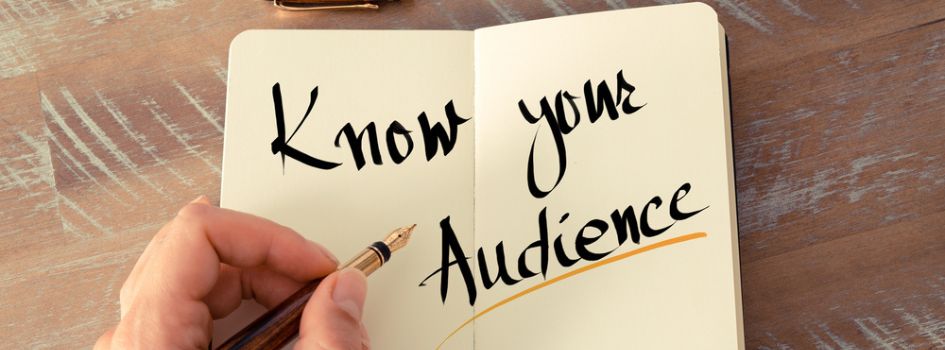 Know your
Audience